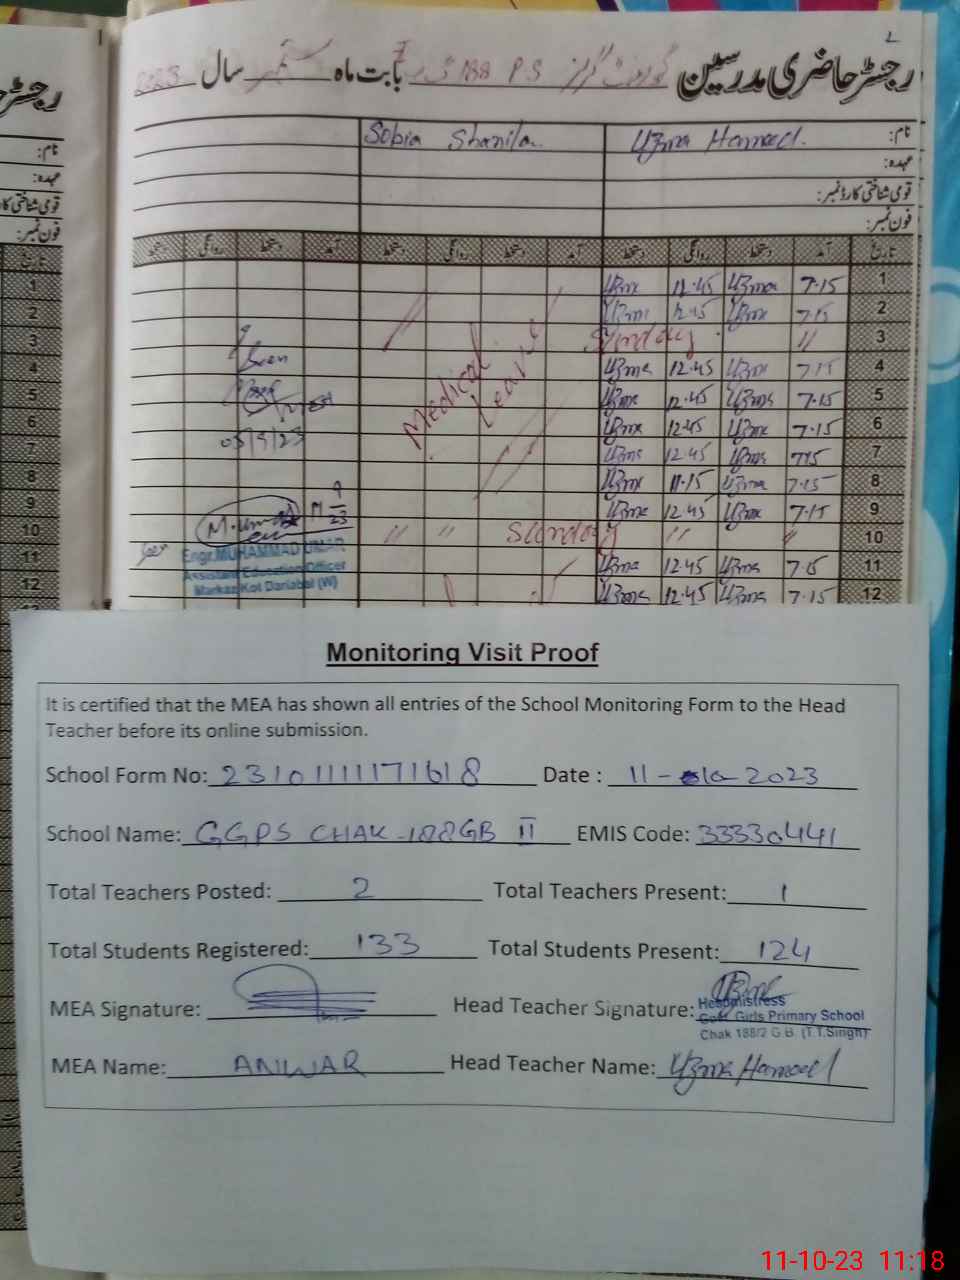 2
رجسٹر حاضری مدرسین گورنمنٹ گرلز P.S 188 بابت ماہ ستمبر سال 2023
نام: Uzma Hameed. Sobia Shanila.
عہدہ:
قومی شناختی کارڈ نمبر:
فون نمبر:
تاریخ آمد دستخط روانگی دستخط آمد دستخط روانگی دستخط آمد دستخط روانگی دستخط
1 7.15 Uzma 12.45 Uzma
2 7.15 Uzma 12.45 Uzma
3 〃 Sunday
4 7.15 Uzma 12.45 Uzma
5 7.15 Uzma 12.45 Uzma
6 7.15 Uzma 12.45 Uzma
7 7.15 Uzma 12.45 Uzma
8 7.15 Uzma 11.15 Uzma
9 7.15 Uzma 12.45 Uzma
10 〃 〃 Sunday 〃 〃
11 7.15 Uzma 12.45 Uzma
12 7.15 Uzma 12.45 Uzma
Medical Leave
Seen
05/9/23
M.umar
Engr.MUHAMMAD UMAR
Assistant Education Officer
Markaz Kot Dariabal (W)
رجسٹر
نام:
عہدہ:
قومی شناختی کا
فون نمبر:
تاریخ
1
2
3
4
5
6
7
8
9
10
11
12
Monitoring Visit Proof
It is certified that the MEA has shown all entries of the School Monitoring Form to the Head
Teacher before its online submission.
School Form No: 23101111171618 Date : 11-10-2023
School Name: GGPS CHAK-188GB II EMIS Code: 33330441
Total Teachers Posted: 2 Total Teachers Present: 1
Total Students Registered: 133 Total Students Present: 124
MEA Signature: Head Teacher Signature: Uzma
Headmistress
Govt. Girls Primary School
Chak 188/2 G.B. (T.T.Singh)
MEA Name: ANWAR Head Teacher Name: Uzma Hameed
11-10-23 11:18